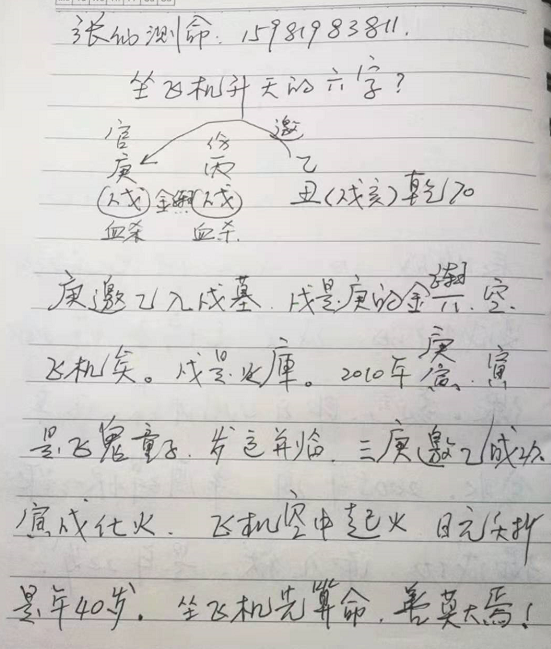 张仙测命：15981983811.
坐飞机升天的六字？
官 份 邀
庚 丙 乙
(戌) 金舆 (戌) 丑(戌亥)乾70
血杀 血杀.
庚邀乙入戌墓.戌是庚的金舆六.空.
飞机矣。戌是火庫。2010年庚寅.寅
是飞鬼童子.岁运并临.三庚邀乙成功.
寅戌化火.飞机空中起火 日元夭折
是年40岁.坐飞机先算命.善莫大焉!